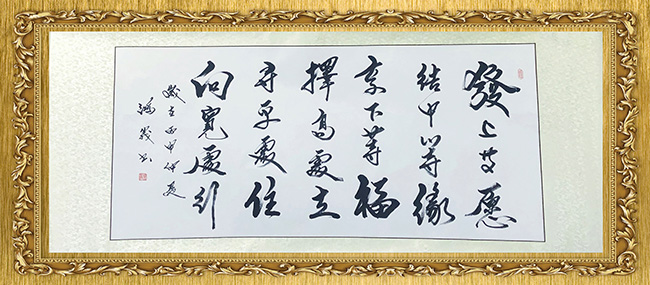 發上等愿
結中等緣
享下等福
擇高處立
尋平處住
向寬處行
歲在丙申仲夏
书